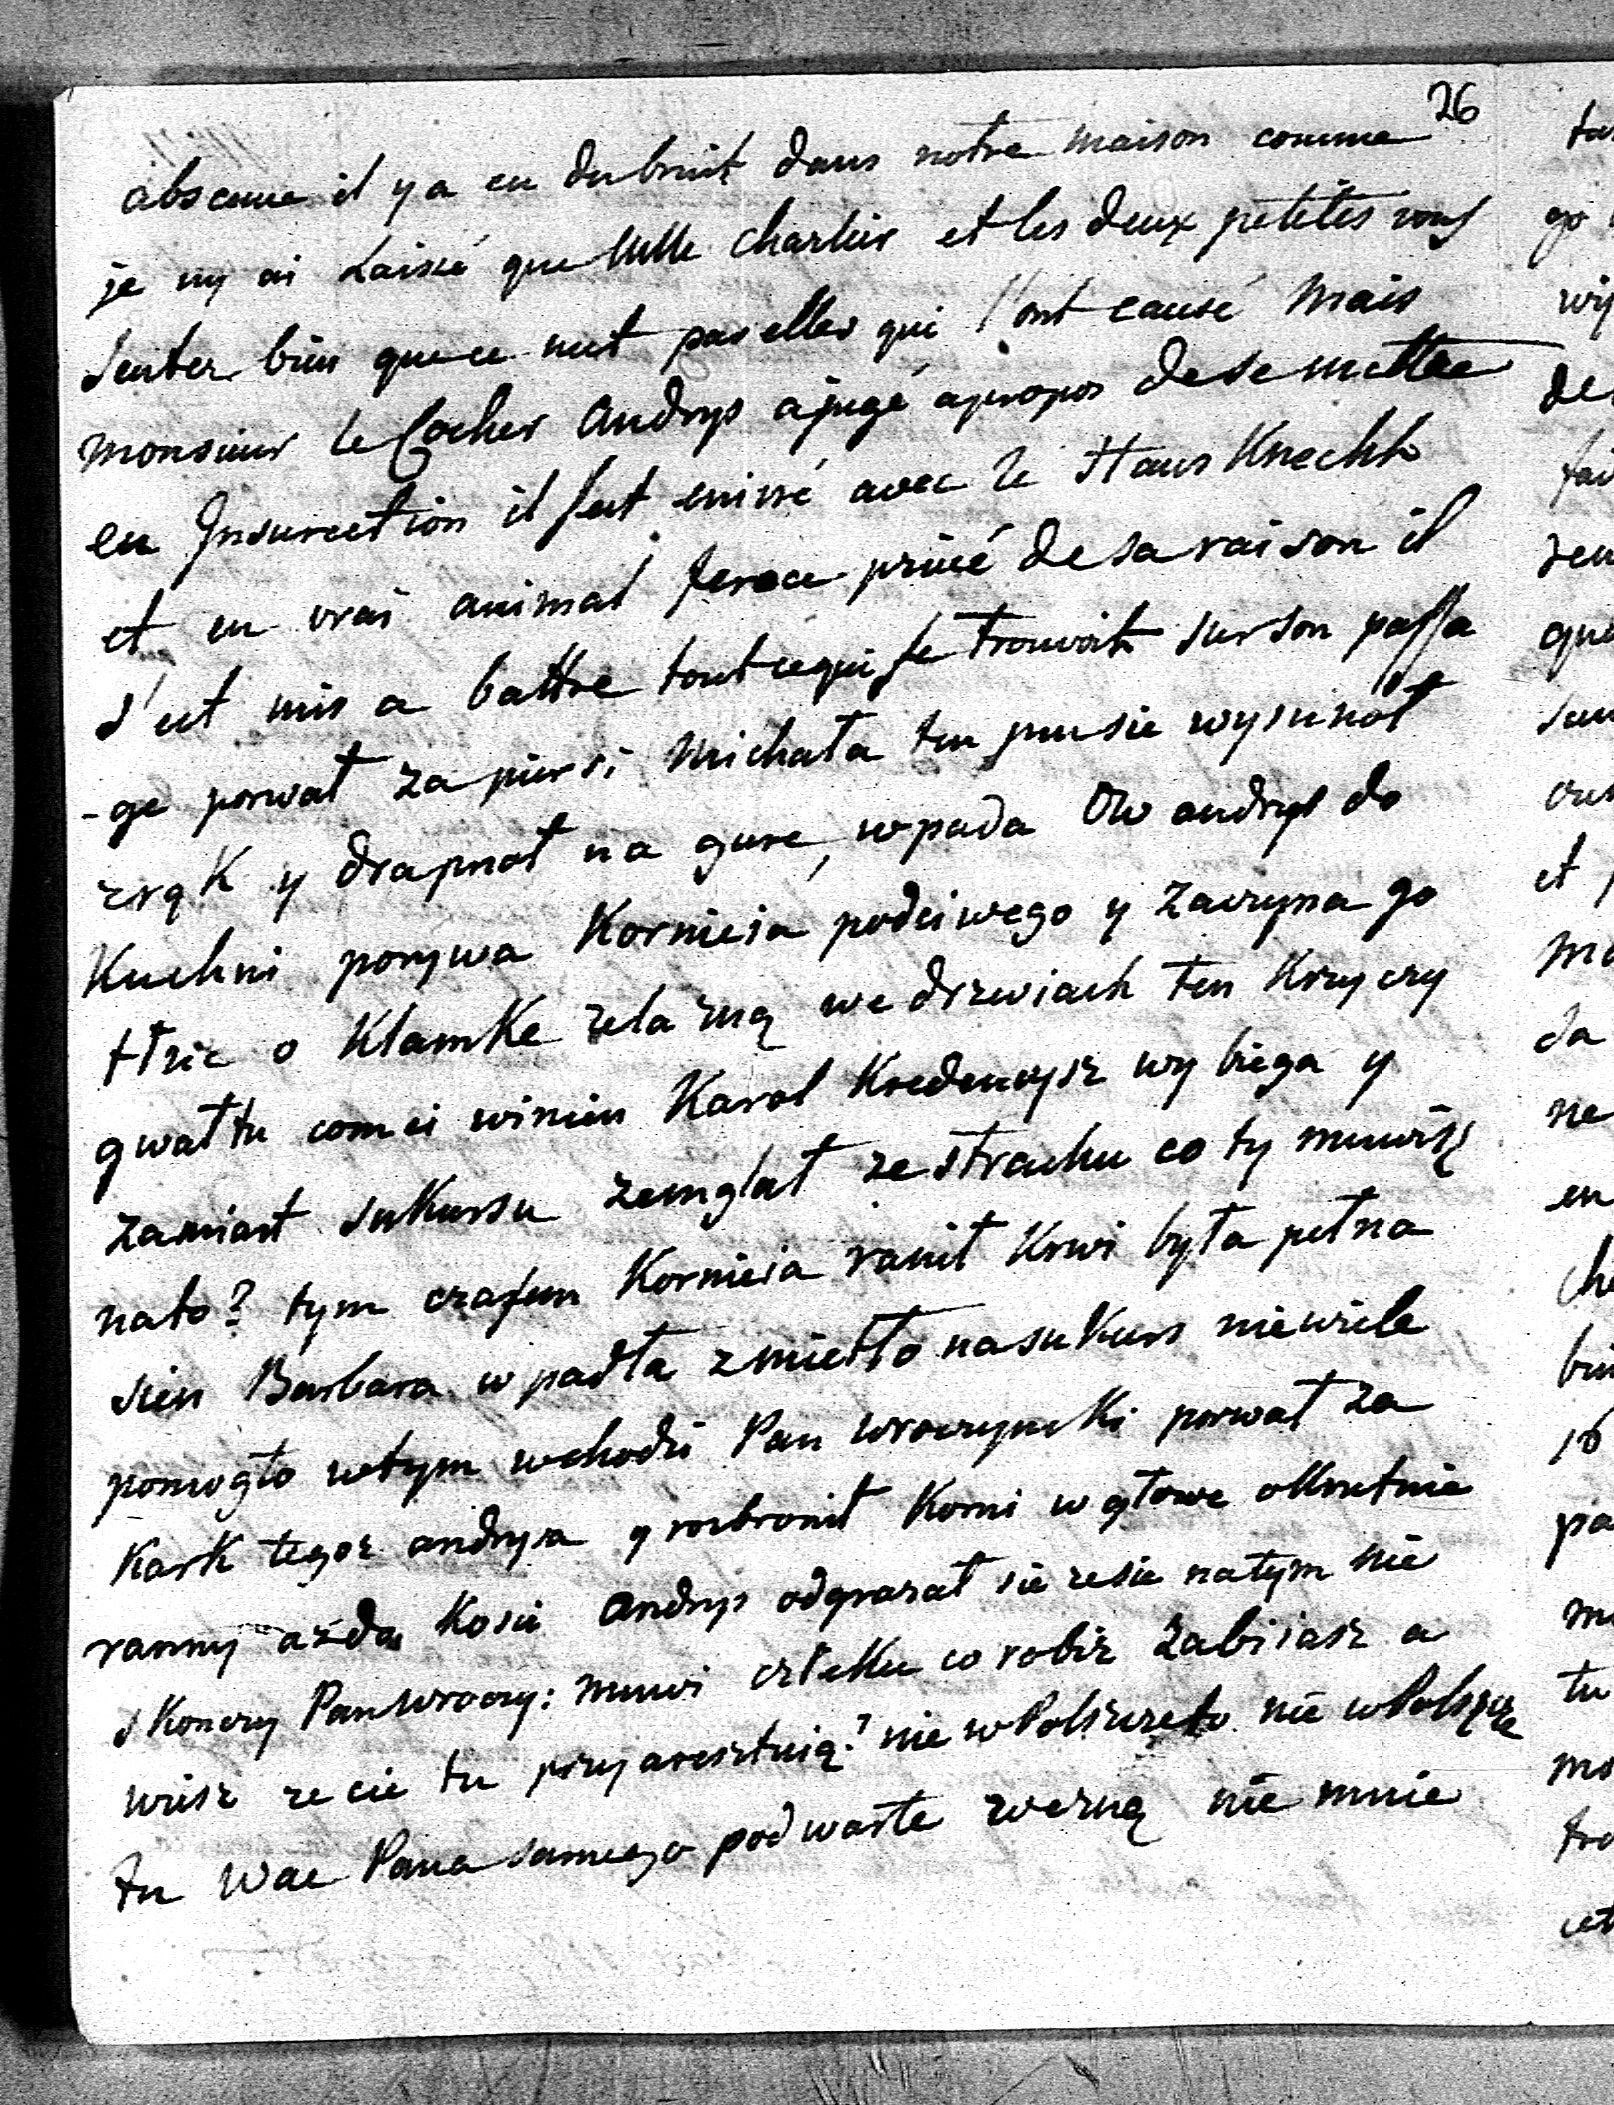 26
absence il y a eu du bruit dans notre maison comme
je ny ai Laissé que Mlle Charlier et les deux petites vous
sentez bien que ce nest pas elles qui l'ont causé mais
monsieur le Cocher Andrys a jugé apropos de se mettre
en Insurection il sest enivré avec le Haus Knecht
et en vrai animal feroce privé de sa raison il
s'est mis a battre tout ce qui se trouvoit sur son passa
-ge porwał za piersi Michała ten mu sie wysunoł
zrąk y drapnoł na gure, wpada Ow andrys do
Kuchni porywa Kornieia poćiwego y zaczyna go
tłric o Klamke zelazną we drzwiach ten Krzyczy
gwałtu com ci winien Karol Kredencysz wybiega y
zamiast sukursu zemglał ze strachu co ty muwisz
nato? tym czasem Kornieia ranił Krwi była pełna
sien Barbara wpadła zmiotło na sukurs niewiele
pomogło wtym wchodzi Pan Wroczynski porwał za
Kark tegoz andrysa y rozbronił Korni w głowe okrutnie
ranny azdo Kosci Andrys odgrazał sie ze sie natym nie
skonczy Pan Wroczy: muwi człeku co robisz zabiiasz a
wiesz ze cie tu przyaresztuią? nie w Polszcze to nie w Polszcze
tu Wac Pana samego pod warte wezną nie mnie